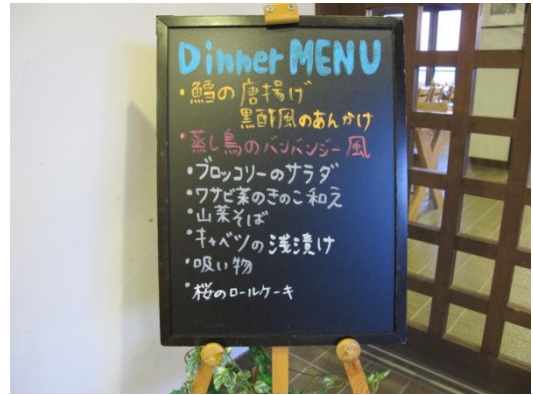 Dinner MENU
・鱈の唐揚げ
黒酢風のあんかけ
・蒸し鳥のバンバンジー風
・ブロッコリーのサラダ
・ワサビ菜のきのこ和え
・山菜そば
・キャベツの浅漬け
・吸い物
・桜のロールケーキ